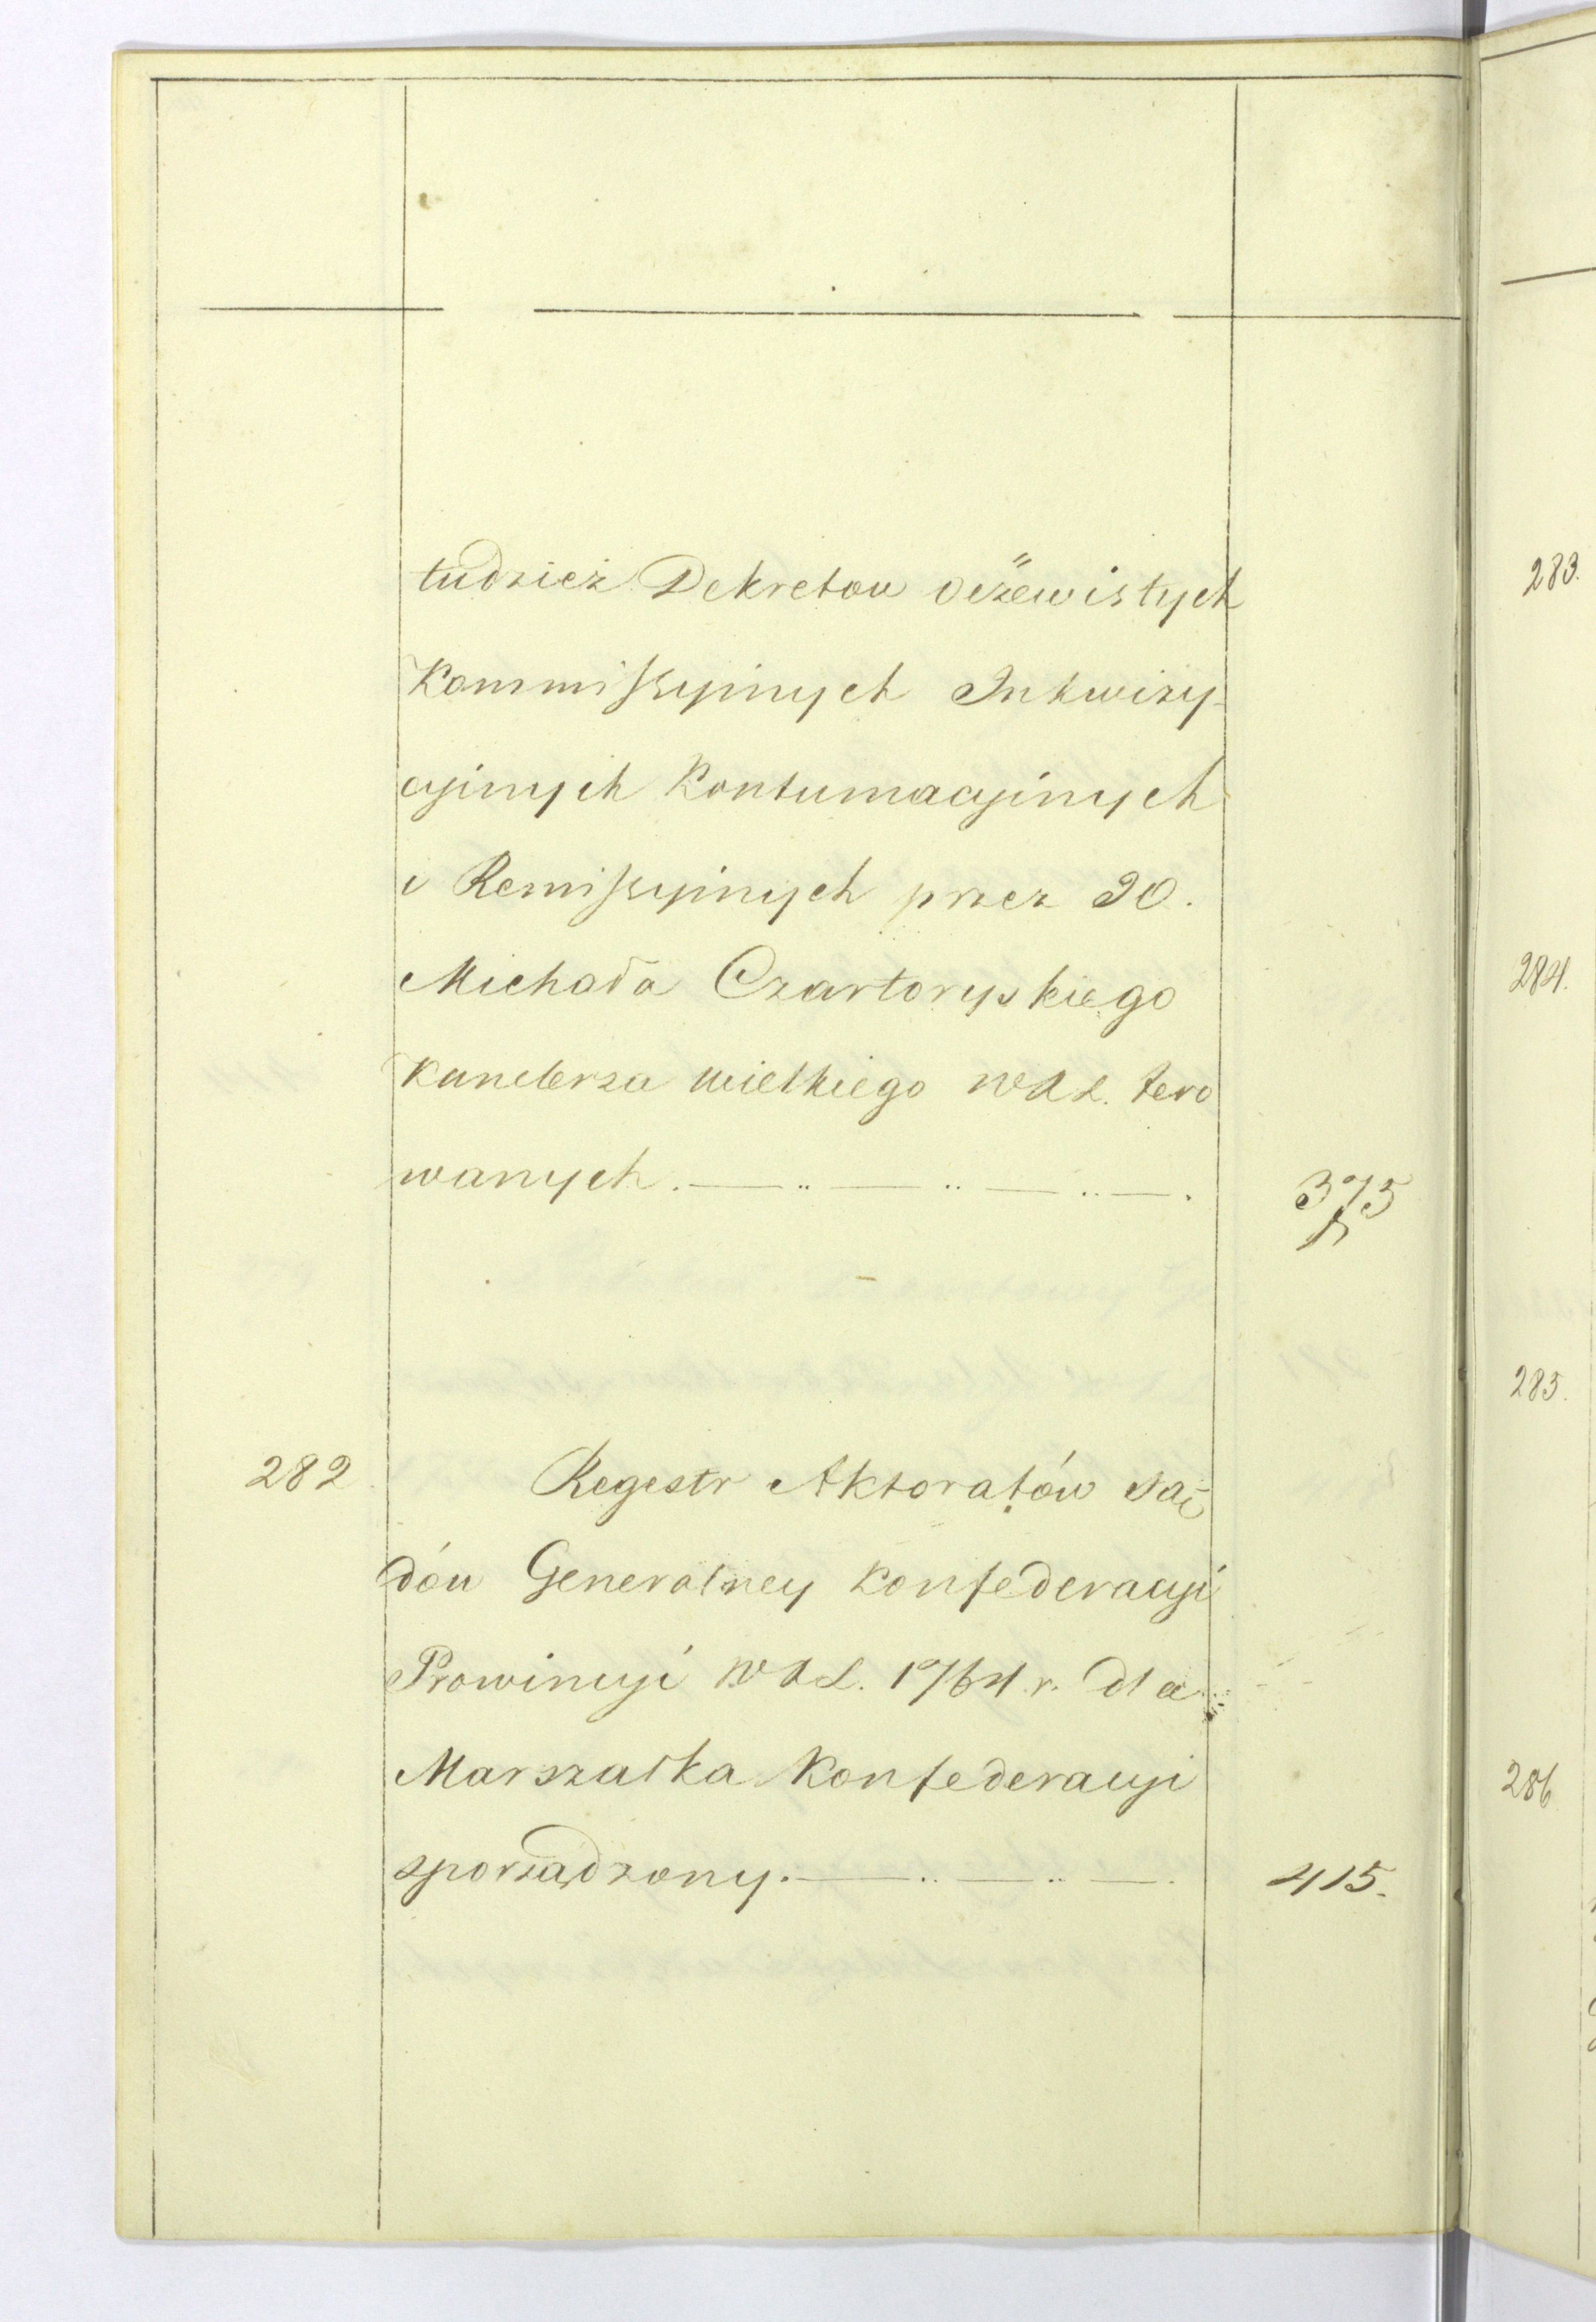 tudzież Dekretow oczewistych
Kommissyinych Inkwizy-
cyinych Kontumacyinych
i Remissyinych przez JO.
Michała Czartoryskiego
Kanclerza wielkiego WXL. fero
wanych. 375
282 Regestr Aktoratów Są
dów Generalney Konfederacyi
Prowincyi WXL. 1764 r. dla
Marszałka Konfederacyi
sporządzony. 415.
283.
284.
285.
286